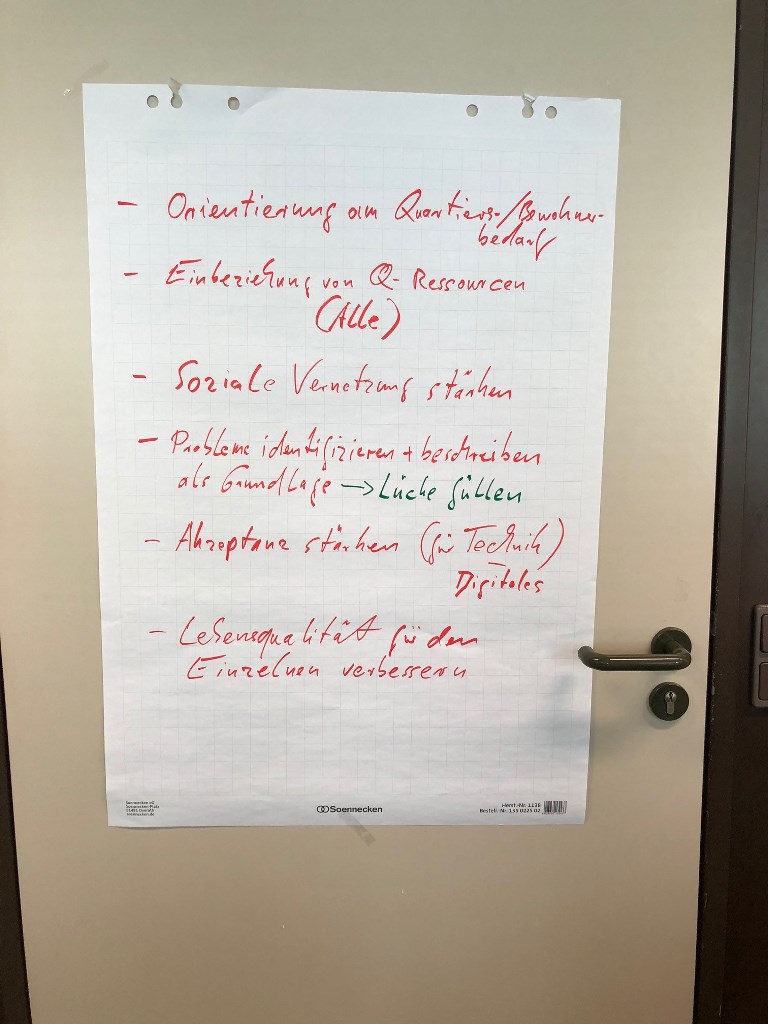 - Orientierung am Quartiers-/Bewohner-
bedarf
- Einbeziehung von Q-Ressourcen
(Alle)
- Soziale Vernetzung stärken
- Probleme identifizieren + beschreiben
als Grundlage → Lücke füllen
- Akzeptanz stärken (für Technik)
Digitales
- Lebensqualität für den
Einzelnen verbessern
Soennecken eG
Soennecken-Platz
51491 Overath
soennecken.de
Soennecken
Herst.-Nr. 1138
Bestell.-Nr. 155 0225 02